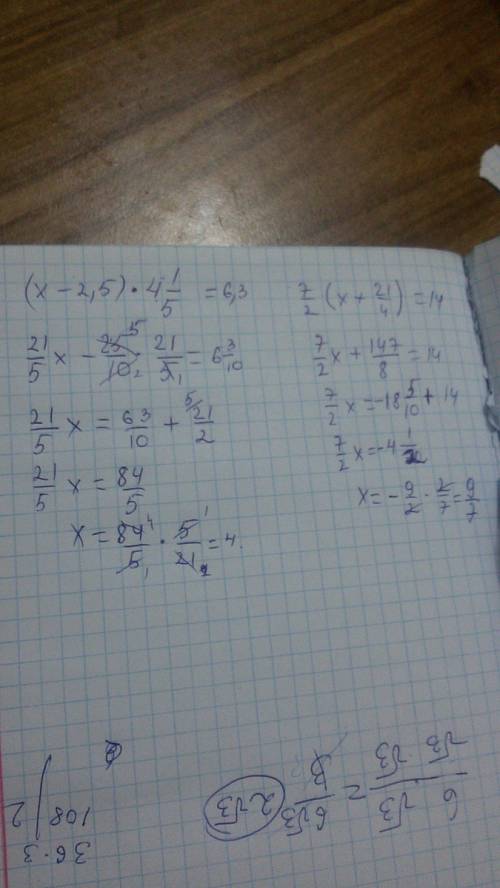 (x − 2,5) • 4 1/5 = 6,3
21/5 x − 25/10 · 21/5 = 6 3/10
21/5 x = 63/10 + 21/2
21/5 x = 84/5
x = 84/5 • 5/21 = 4.
7/2 (x + 21/4) = 14
7/2 x + 147/8 = 14
7/2 x = −18 5/10 + 14
7/2 x = −4 1/2
x = − 9/2 · 2/7 = 9/7
6 √3 / √3 · √3 = 6√3 / 3 2√3
36·3
108 | 2